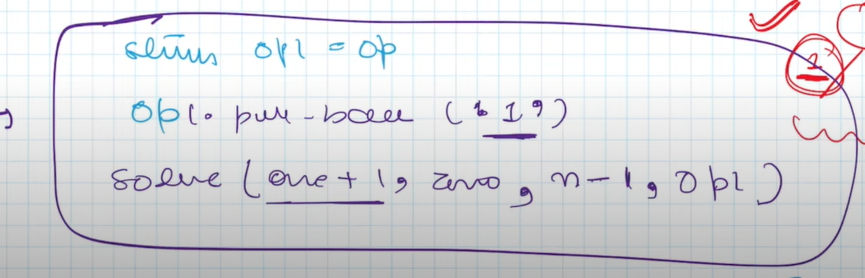 string op1 = op
op1.push_back('1')
solve(one+1, zero, n-1, op1)
1